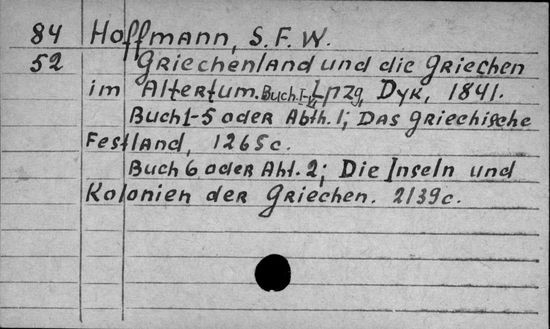 84 Hoffmann, S. F. W.
52 Griechenland und die Griechen
im Altertum. Buch I-VI Lpzg, Dyk, 1841.
Buch 1-5 oder Abth. 1; Das griechische
Festland, 1265c.
Buch 6 oder Abt. 2; Die Inseln und
Kolonien der Griechen. 2139c.